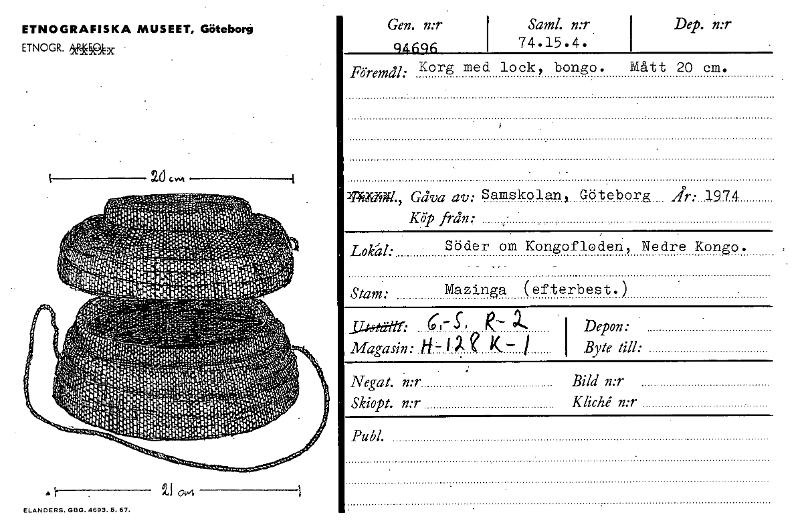 ETNOGRAFISKA MUSEET, Göteborg
ETNOGR. ARKEOL.
20 cm
21 cm
ELANDERS, GBG. 4693. 5. 67.
Gen. n:r Saml. n:r Dep. n:r
94696 74.15.4.
Föremål: Korg med lock, bongo. Mått 20 cm.
Gåva av: Samskolan, Göteborg År: 1974
Köp från:
Lokal: Söder om Kongofloden, Nedre Kongo.
Stam: Mazinga (efterbest.)
Utställt: G.-S. R-2 Depon:
Magasin: H-128 K-1 Byte till:
Negat. n:r Bild n:r
Skiopt. n:r Kliché n:r
Publ.